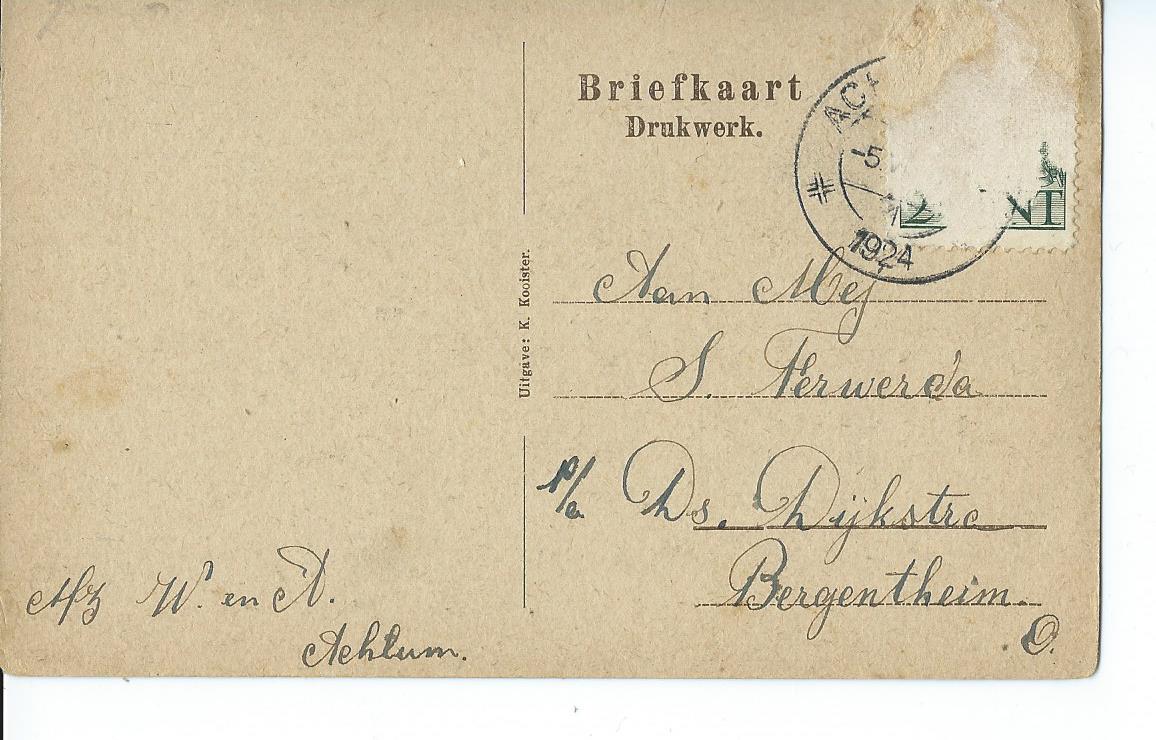 Briefkaart
Drukwerk.
AC
5
1924
NT
Uitgave: K. Kooister.
Aan Mej
S. Ferwerda
p/a Ds. Dijkstra
Bergentheim.
O.
Afz W. en A.
Achlum.